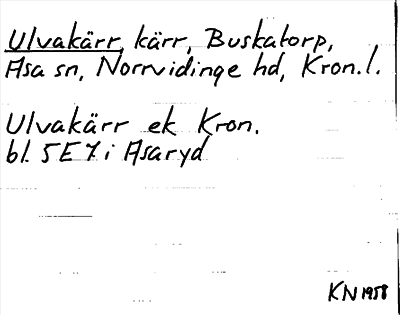 Ulvakärr, kärr, Buskatorp,
Asa sn, Norrvidinge hd, Kron.l.
Ulvakärr ek Kron.
bl. 5E7i Asaryd
KN 1958